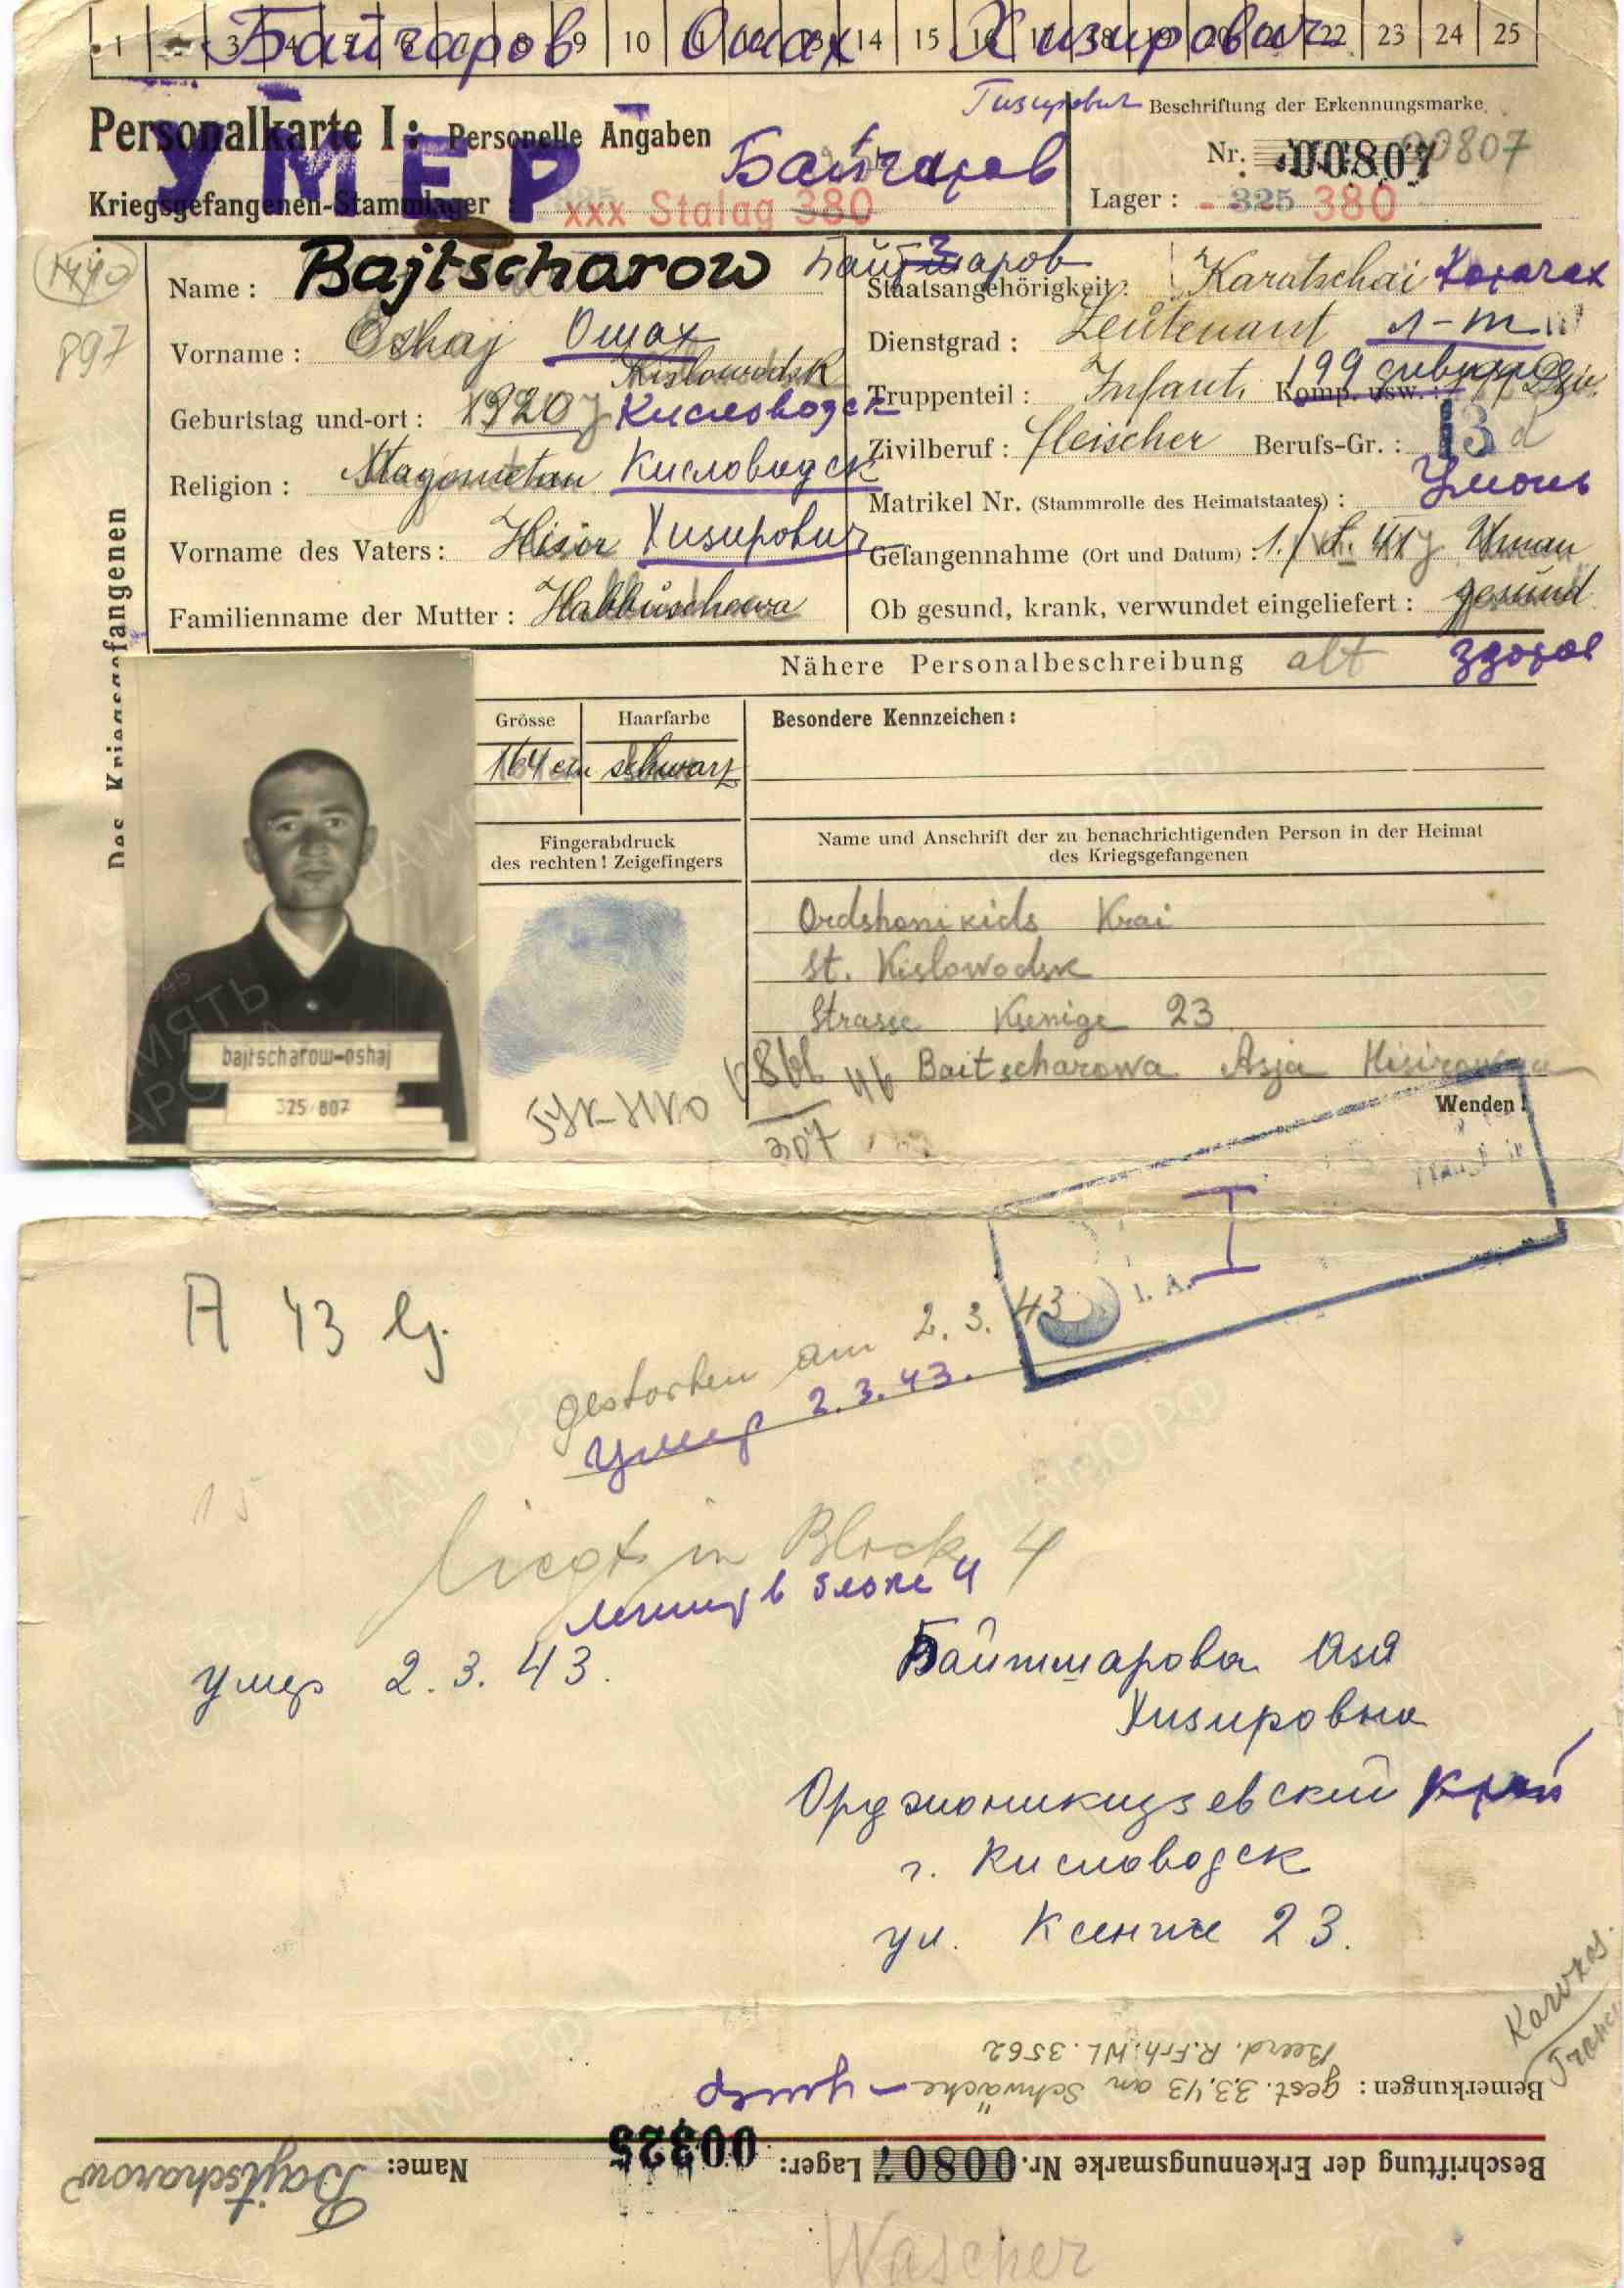 1 2 3 4 5 6 7 8 9 10 11 12 13 14 15 16 17 18 19 20 21 22 23 24 25
Байчаров Ошах Хизирович
Гизирович Beschriftung der Erkennungsmarke
Personalkarte I: Personelle Angaben
УМЕР
Байчаров
Nr. 00807 00807
Kriegsgefangenen-Stammlager : xxx Stalag 380
Lager : - 325 380
897
Des Kriegsgefangenen
Name : Bajtscharow
Vorname : Oshaj Ошах
Kislowodsk
Geburtstag und-ort : 1920 Кисловодск
Religion : Magometan Кисловодск
Vorname des Vaters : Hisir Хизирович
Familienname der Mutter :
Staatsangehörigkeit : Karatschai
Dienstgrad : Leutenant л-т
Truppenteil : Infant. Komp. usw. : 199
Zivilberuf : fleischer Berufs-Gr. : 13 d
Matrikel Nr. (Stammrolle des Heimatstaates) :
Умань
Gefangennahme (Ort und Datum) : Uman
Ob gesund, krank, verwundet eingeliefert : gesund
Nähere Personalbeschreibung alt
здоров
Grösse Haarfarbe Besondere Kennzeichen :
164 cm schwarz
Fingerabdruck
des rechten ! Zeigefingers
Name und Anschrift der zu benachrichtigenden Person in der Heimat
des Kriegsgefangenen
Ordshonikids Krai
St. Kislowodsk
Strasse Ksenige 23
Baitscharowa Asja Hisirowna
bajtscharow-oshaj
325 807
307
Wenden !
I
I. A.
A 43
gestorben am 2. 3. 43
умер 2.3.43.
15
liegt in Block 4
лежит в блоке 4
умер 2.3.43.
Байтшарова Азя
Хизировна
Орджоникидзевский край
г. Кисловодск
ул. Ксениге 23.
Bemerkungen : gest. 3.3.43 an Schwäche - умер
Beerd. R.Frh. WL. 3562
Beschriftung der Erkennungsmarke Nr. 00807 Lager: 00325 Name: Bajtscharow
Wascher